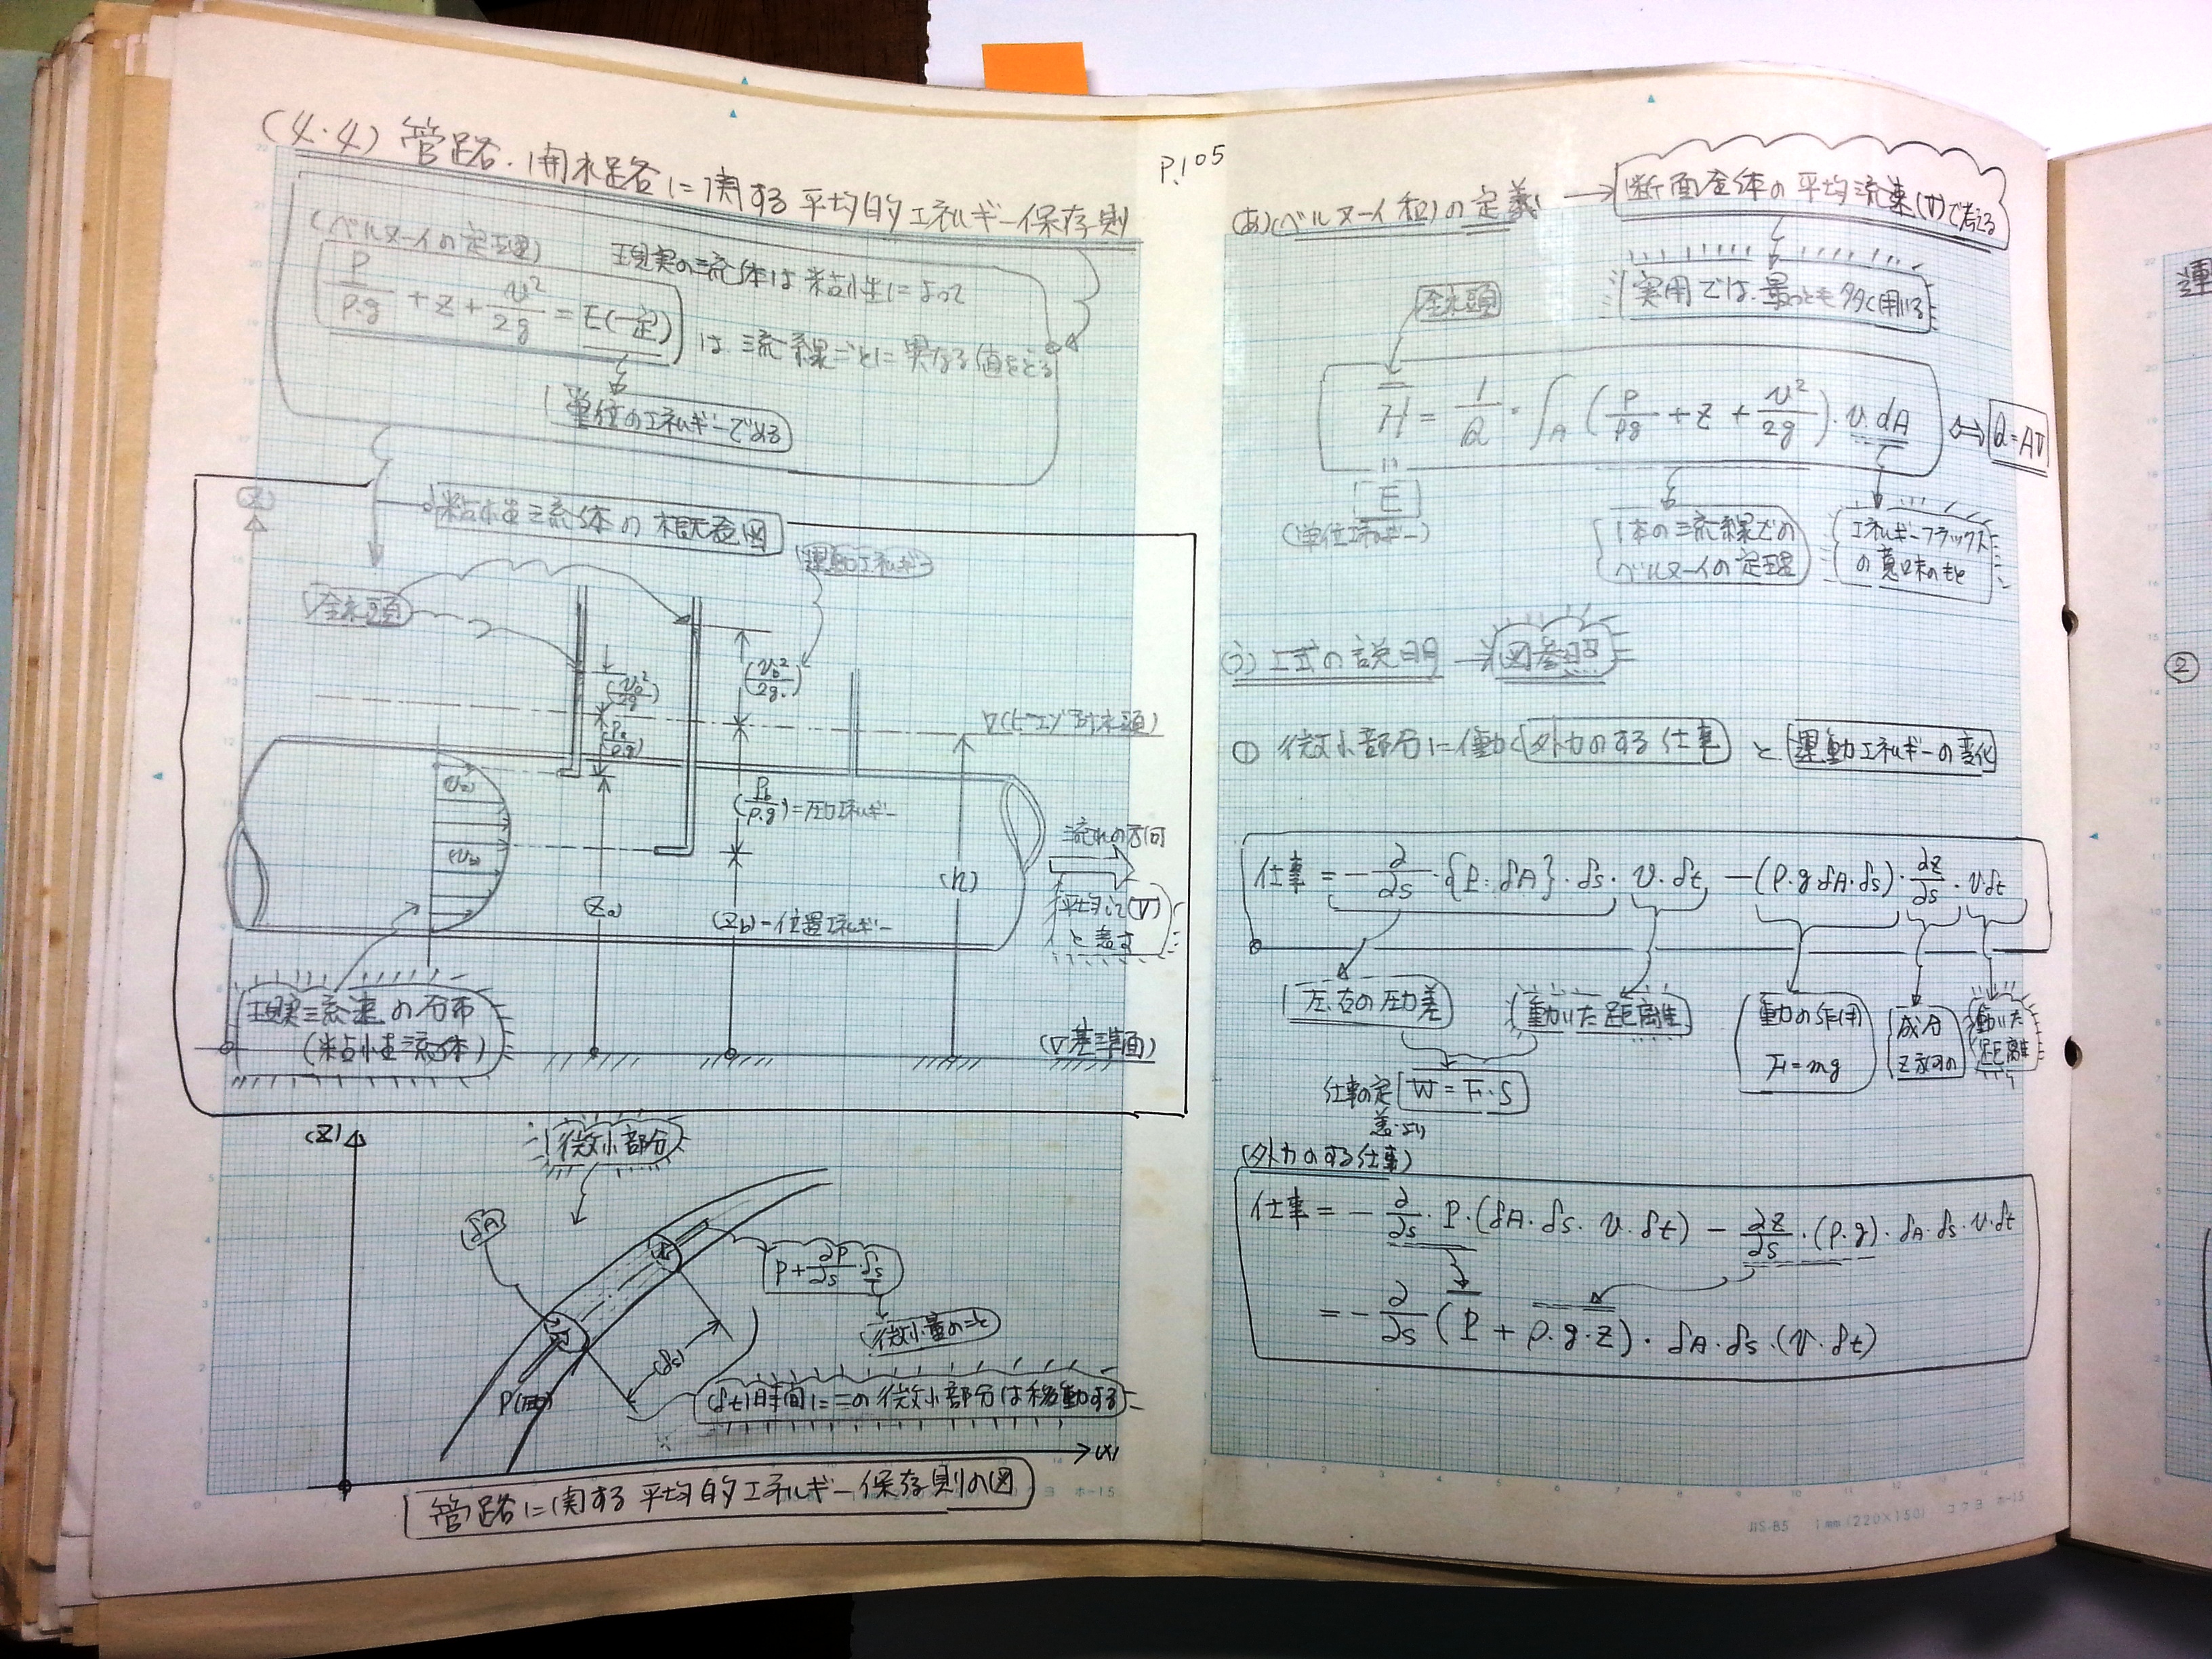 (4.4) 管路.開水路に関する平均的エネルギー保存則
P.105
(ベルヌーイの定理)
P/ρ.g + z + v²/2g = E(一定)
現実の流体は粘性によって
は.流線ごとに異なる値をとる
単位のエネルギーである
粘性流体の概念図
(Z)
全水頭
運動エネルギー
(va²/2g)
(vb²/2g.)
(Pa/ρ.g)
▽(ピエゾ水頭)
(va)
(Pb/ρ.g)=圧力エネルギー
流れの方向
(vb)
(h)
(Za)
(Zb)-位置エネルギー
平均して(V)
と表す
現実流速の分布
(粘性流体)
(▽基準面)
(Z)
微小部分
δA
P+∂P/∂s・δs
微小量のこと
(δs)
P(圧力)
(δt)時間にこの微小部分は移動する
(x)
管路に関する平均的エネルギー保存則の図
(あ)(ベルヌーイ和)の定義 → 断面全体の平均流速(V)で考える
実用では.最っとも多く用いる
全水頭
H = 1/Q・∫A (P/ρg + z + v²/2g)・v.dA ⇔ Q=AV
=
E
(単位エネルギー)
1本の流線での
ベルヌーイの定理
エネルギーフラックス
の意味のもと
(う)上式の説明 → 図参照
① 微小部分に働く外力のする仕事 と 運動エネルギーの変化
仕事 = -∂/∂s・{P・δA}・δs・v・δt, -(ρ.g δA・δs)・∂z/∂s・v・δt
左.右の圧力差
動いた距離
動力の作用
F=mg
成分
Z方向の
動いた
距離
仕事の定
義より
W = F・S
(外力のする仕事)
仕事 = -∂/∂s・P・(δA・δs・v・δt) - ∂z/∂s・(ρ.g)・δA・δs・v・δt
= -∂/∂s (P + ρ.g.z)・δA・δs・(v・δt)
JIS-B5 1mm(220×150) コクヨ ホ-15
運
②